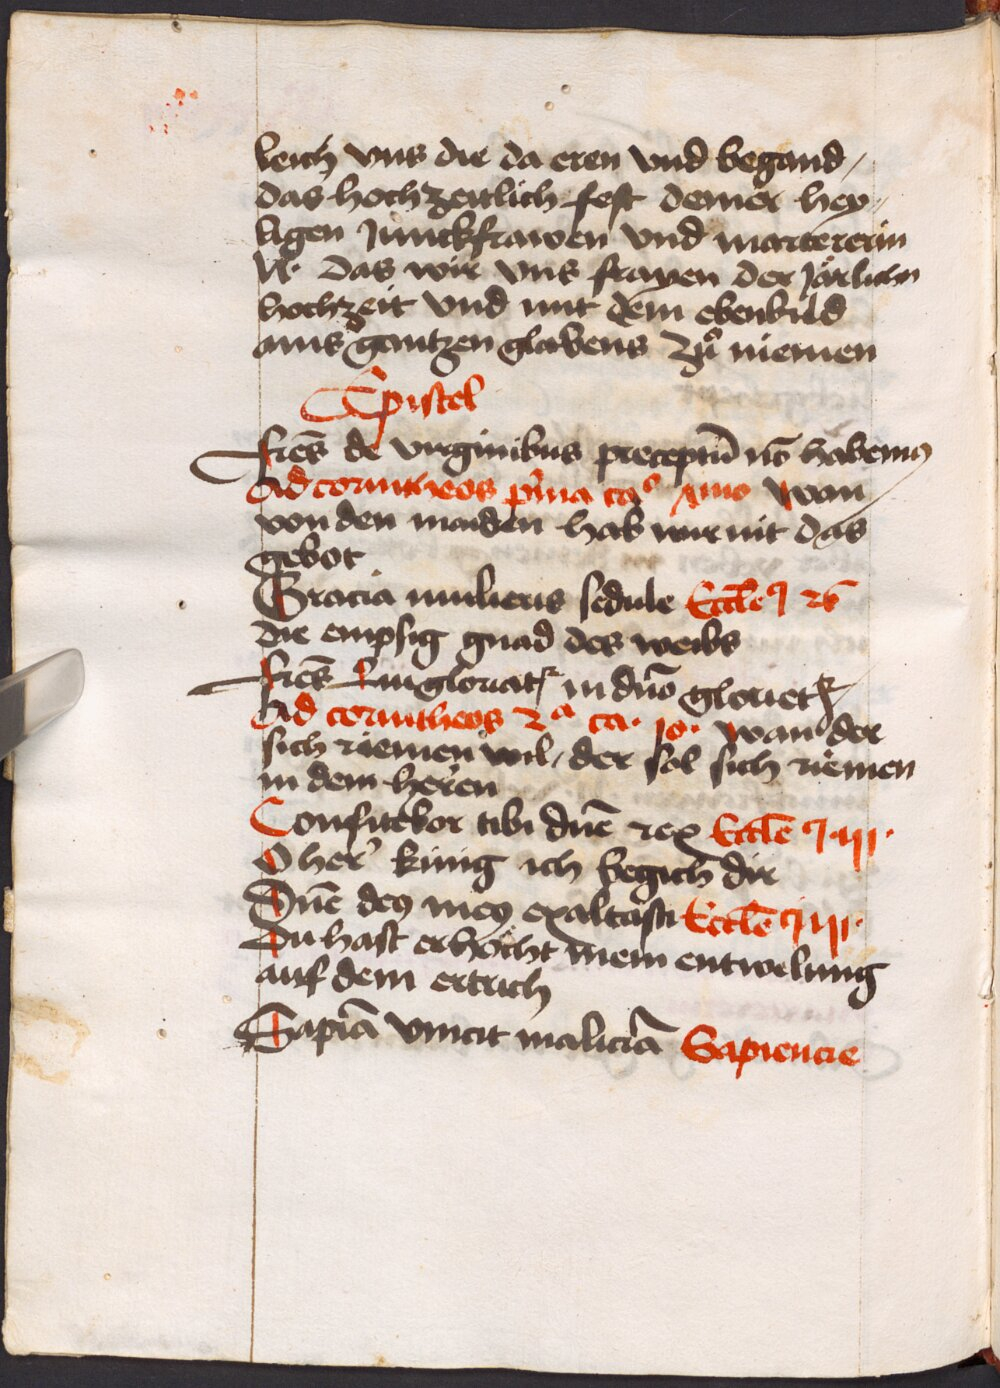 leich vns die da eren vnd begand /
das hochzeitlich fest deiner hey /
ligen Junckfrawen vnd martererin
N. das wir vns frayen der Järlichn
hochzeit vnd mit dem ebenbild
ains gantzen glabens zuͦ niemen
Epistel
Fres̄ de virginibus preceptū nō habemꝯ
Ad corintheos prima cao vijmo wan
von den maiden hab wir nit das
gebot
Gracia mulieris sedule Eccle 26
die empsig gnad des weibs
Fres̄ Qui gloriatr in dn̄o glorietr
Ad corintheos 2a ca. 10. wan der
sich riemen wil / der sol sich riemen
in dem heren
Confitebor tibi dn̄e rex Eccle
O her künig ich begich dir
Dn̄e deꝯ meꝯ exaltasti Eccle
Du hast erhöcht mein entwelung
auf dem ertrich
Sapiā vincit maliciā Sapiencie